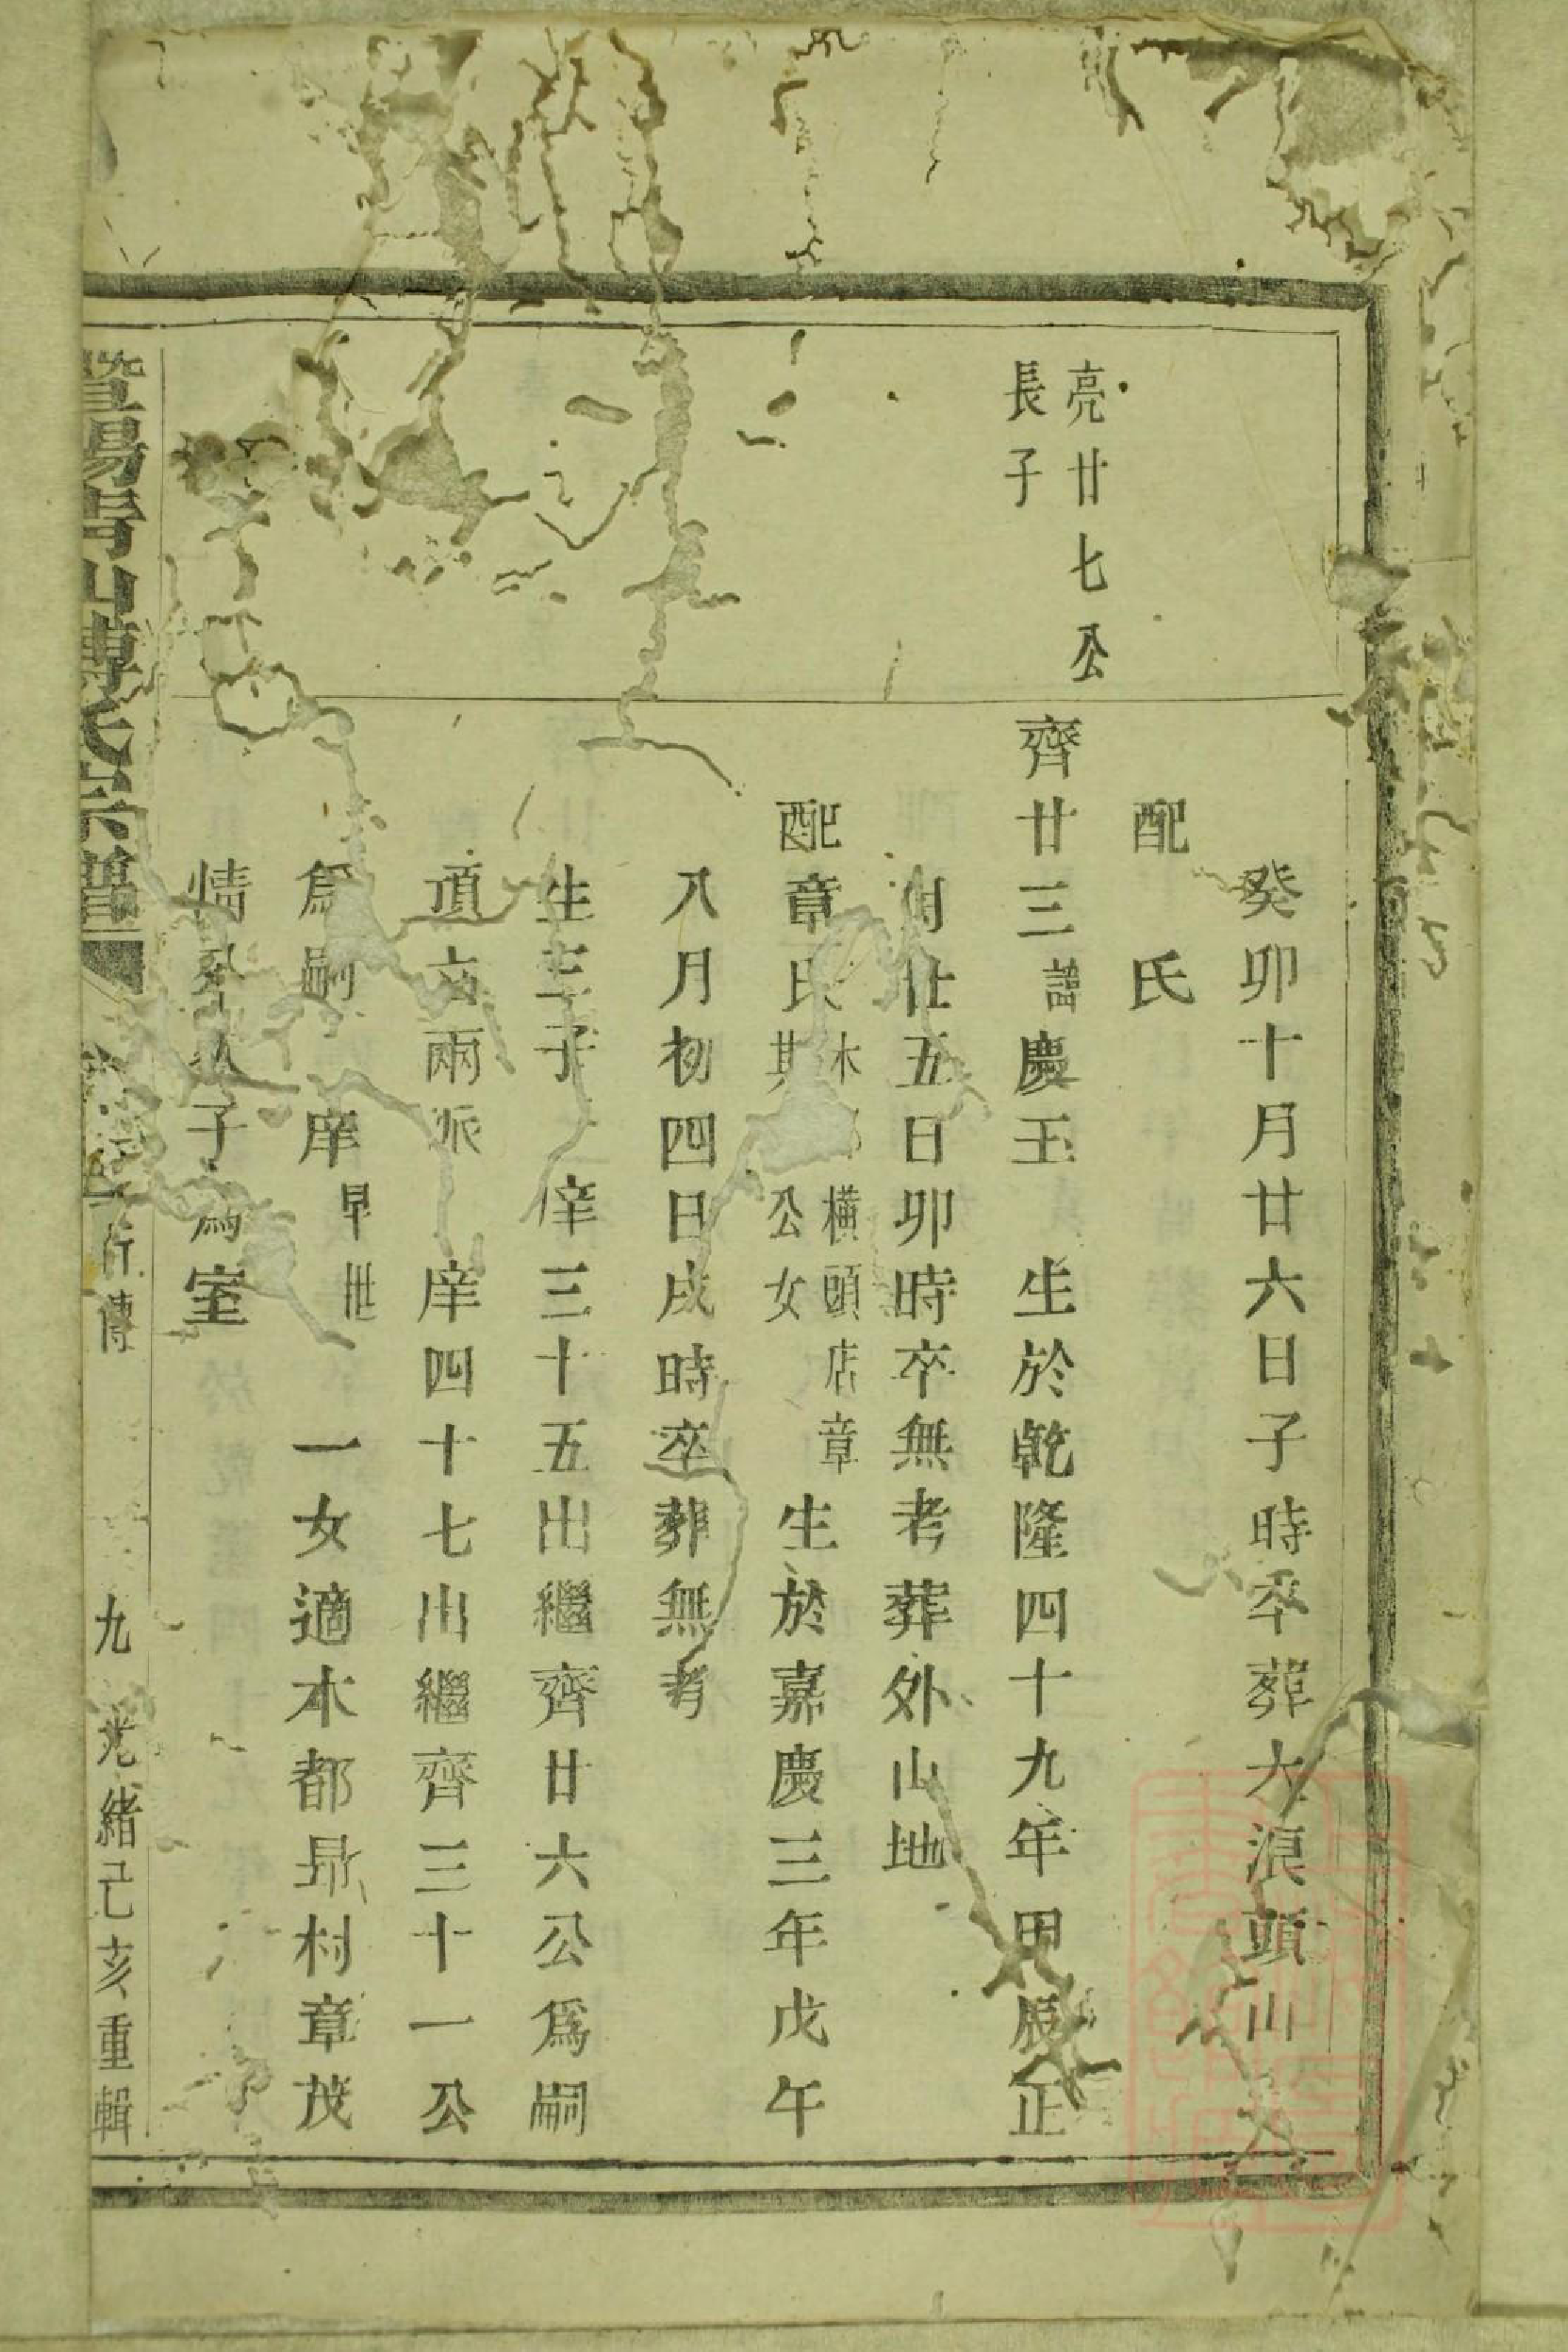 癸卯十月廿六日子時卒葬大浪頭山
配 氏
亮廿七公
長子
齊廿三諱慶玉 生於乾隆四十九年甲辰正
月廿五日卯時卒無考葬外山地
配章氏 橫頭店章 公女 生於嘉慶三年戊午
八月初四日戌時卒葬無考
生三子 庠三十五出繼齊廿六公爲嗣
頂立兩派 庠四十七出繼齊三十一公
爲嗣 庠 早世 一女適本都昻村章茂
子爲室
暨陽青山傅氏宗譜 行傳 九 光緒己亥重輯